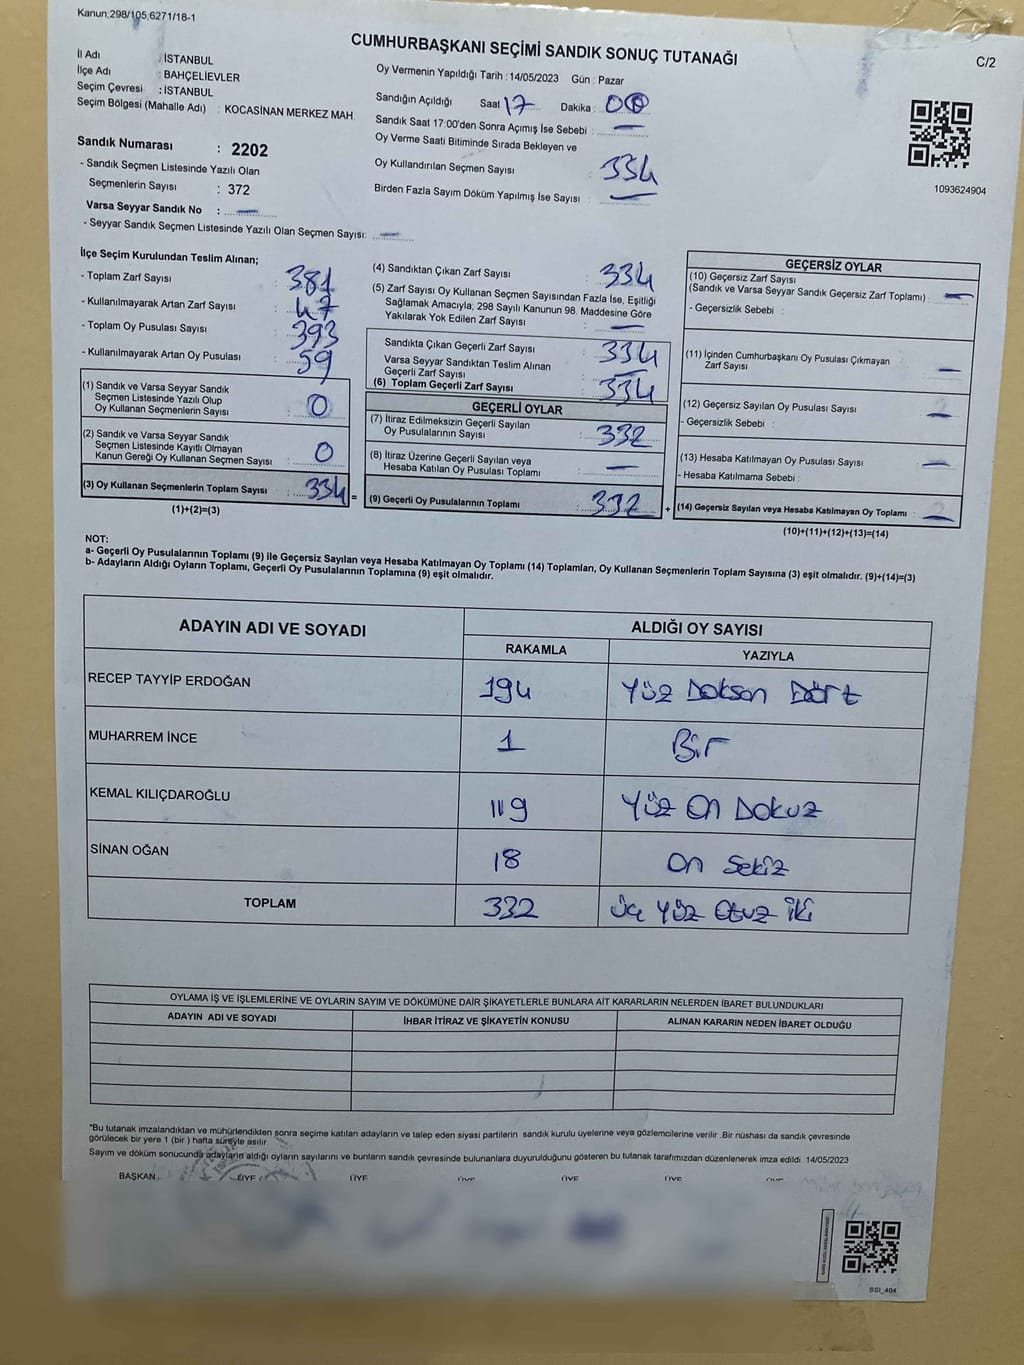 Kanun;298/105,6271/18-1
CUMHURBAŞKANI SEÇİMİ SANDIK SONUÇ TUTANAĞI
C/2
İl Adı : İSTANBUL
İlçe Adı : BAHÇELİEVLER
Seçim Çevresi : İSTANBUL
Seçim Bölgesi (Mahalle Adı) : KOCASİNAN MERKEZ MAH
Sandık Numarası : 2202
- Sandık Seçmen Listesinde Yazılı Olan
Seçmenlerin Sayısı : 372
Varsa Seyyar Sandık No : —
- Seyyar Sandık Seçmen Listesinde Yazılı Olan Seçmen Sayısı: —
Oy Vermenin Yapıldığı Tarih : 14/05/2023 Gün : Pazar
Sandığın Açıldığı Saat 17 Dakika : 00
Sandık Saat 17:00'den Sonra Açımış İse Sebebi : —
Oy Verme Saati Bitiminde Sırada Bekleyen ve
Oy Kullandırılan Seçmen Sayısı : 334
Birden Fazla Sayım Döküm Yapılmış İse Sayısı : —
1093624904
İlçe Seçim Kurulundan Teslim Alınan;
- Toplam Zarf Sayısı : 381
- Kullanılmayarak Artan Zarf Sayısı : 47
- Toplam Oy Pusulası Sayısı : 393
- Kullanılmayarak Artan Oy Pusulası : 59
(1) Sandık ve Varsa Seyyar Sandık
Seçmen Listesinde Yazılı Olup
Oy Kullanan Seçmenlerin Sayısı : 0
(2) Sandık ve Varsa Seyyar Sandık
Seçmen Listesinde Kayıtlı Olmayan
Kanun Gereği Oy Kullanan Seçmen Sayısı : 0
(3) Oy Kullanan Seçmenlerin Toplam Sayısı : 334 =
(1)+(2)=(3)
(4) Sandıktan Çıkan Zarf Sayısı : 334
(5) Zarf Sayısı Oy Kullanan Seçmen Sayısından Fazla İse, Eşitliği
Sağlamak Amacıyla; 298 Sayılı Kanunun 98. Maddesine Göre
Yakılarak Yok Edilen Zarf Sayısı : —
Sandıkta Çıkan Geçerli Zarf Sayısı : 334
Varsa Seyyar Sandıktan Teslim Alınan
Geçerli Zarf Sayısı : —
(6) Toplam Geçerli Zarf Sayısı : 334
GEÇERLİ OYLAR
(7) İtiraz Edilmeksizin Geçerli Sayılan
Oy Pusulalarının Sayısı : 332
(8) İtiraz Üzerine Geçerli Sayılan veya
Hesaba Katılan Oy Pusulası Toplamı : —
(9) Geçerli Oy Pusulalarının Toplamı : 332 +
GEÇERSİZ OYLAR
(10) Geçersiz Zarf Sayısı
(Sandık ve Varsa Seyyar Sandık Geçersiz Zarf Toplamı) : —
- Geçersizlik Sebebi :
(11) İçinden Cumhurbaşkanı Oy Pusulası Çıkmayan
Zarf Sayısı : —
(12) Geçersiz Sayılan Oy Pusulası Sayısı :
- Geçersizlik Sebebi :
(13) Hesaba Katılmayan Oy Pusulası Sayısı : —
- Hesaba Katılmama Sebebi :
(14) Geçersiz Sayılan veya Hesaba Katılmayan Oy Toplamı :
(10)+(11)+(12)+(13)=(14)
NOT:
a- Geçerli Oy Pusulalarının Toplamı (9) ile Geçersiz Sayılan veya Hesaba Katılmayan Oy Toplamı (14) Toplamları, Oy Kullanan Seçmenlerin Toplam Sayısına (3) eşit olmalıdır. (9)+(14)=(3)
b- Adayların Aldığı Oyların Toplamı, Geçerli Oy Pusulalarının Toplamına (9) eşit olmalıdır.
ADAYIN ADI VE SOYADI
ALDIĞI OY SAYISI
RAKAMLA YAZIYLA
RECEP TAYYİP ERDOĞAN 194 Yüz Doksan Dört
MUHARREM İNCE 1 Bir
KEMAL KILIÇDAROĞLU 119 Yüz On Dokuz
SİNAN OĞAN 18 On Sekiz
TOPLAM 332 Üç Yüz Otuz İki
OYLAMA İŞ VE İŞLEMLERİNE VE OYLARIN SAYIM VE DÖKÜMÜNE DAİR ŞİKAYETLERLE BUNLARA AİT KARARLARIN NELERDEN İBARET BULUNDUKLARI
ADAYIN ADI VE SOYADI İHBAR İTİRAZ VE ŞİKAYETİN KONUSU ALINAN KARARIN NEDEN İBARET OLDUĞU
*Bu tutanak imzalandıktan ve mühürlendikten sonra seçime katılan adayların ve talep eden siyasi partilerin sandık kurulu üyelerine veya gözlemcilerine verilir .Bir nüshası da sandık çevresinde
görülecek bir yere 1 (bir ) hafta süreyle asılır.
Sayım ve döküm sonucunda adayların aldığı oyların sayılarını ve bunların sandık çevresinde bulunanlara duyurulduğunu gösteren bu tutanak tarafımızdan düzenlenerek imza edildi. 14/05/2023
BAŞKAN ÜYE ÜYE ÜYE ÜYE ÜYE
SSI_404